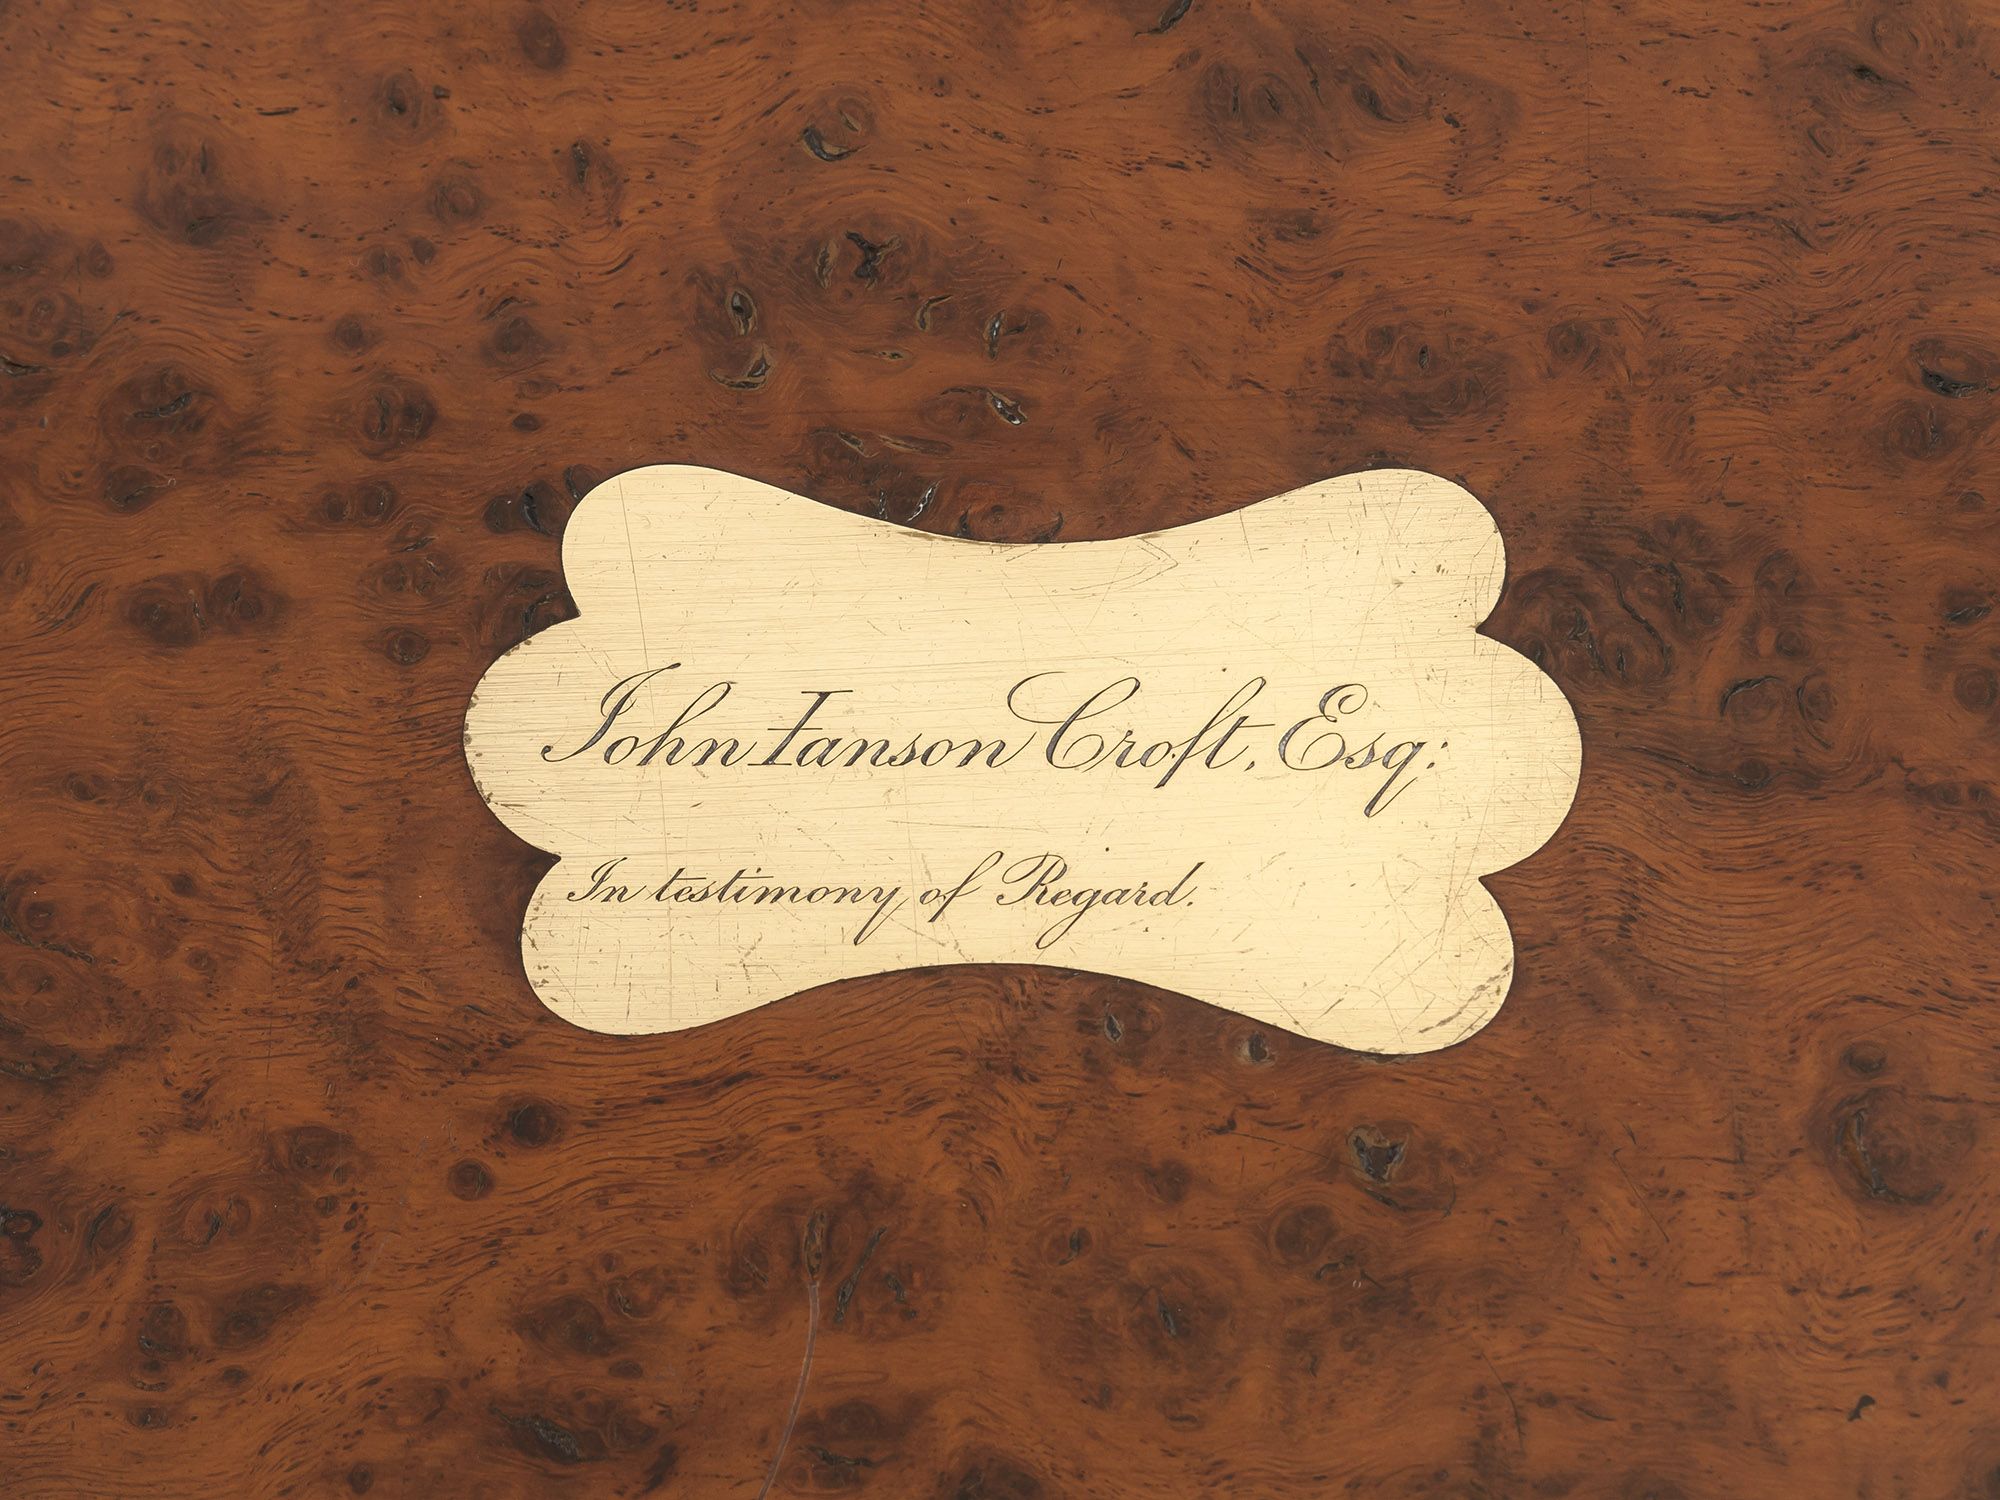 John Ianson Croft, Esq:
In testimony of Regard.